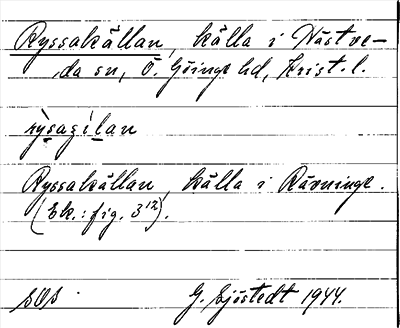 Ryssakällan, källa i Nästve-
da sn, Ö. Göinge hd, Krist. l.
rỳsaɕílan
Ryssakällan, källa i Rävninge.
(Ek.: fig. 3¹²).
G. Sjöstedt 1944.